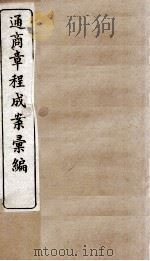 通商章程成案彙編
mtoou.info